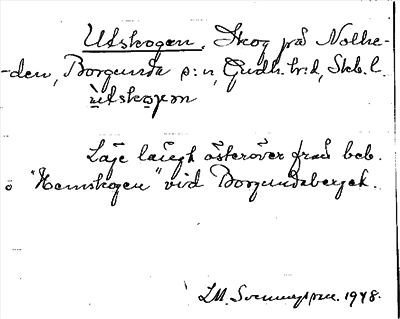 Utskogen. Skog på Nolhe-
-den, Borgunda s:n, Gudh. h:d, Skb. l.
ùtskogən
Låg längst österöver från beb.
o "Hemskogen" vid Borgundaberget.
L.M. Svennungsson. 1948.